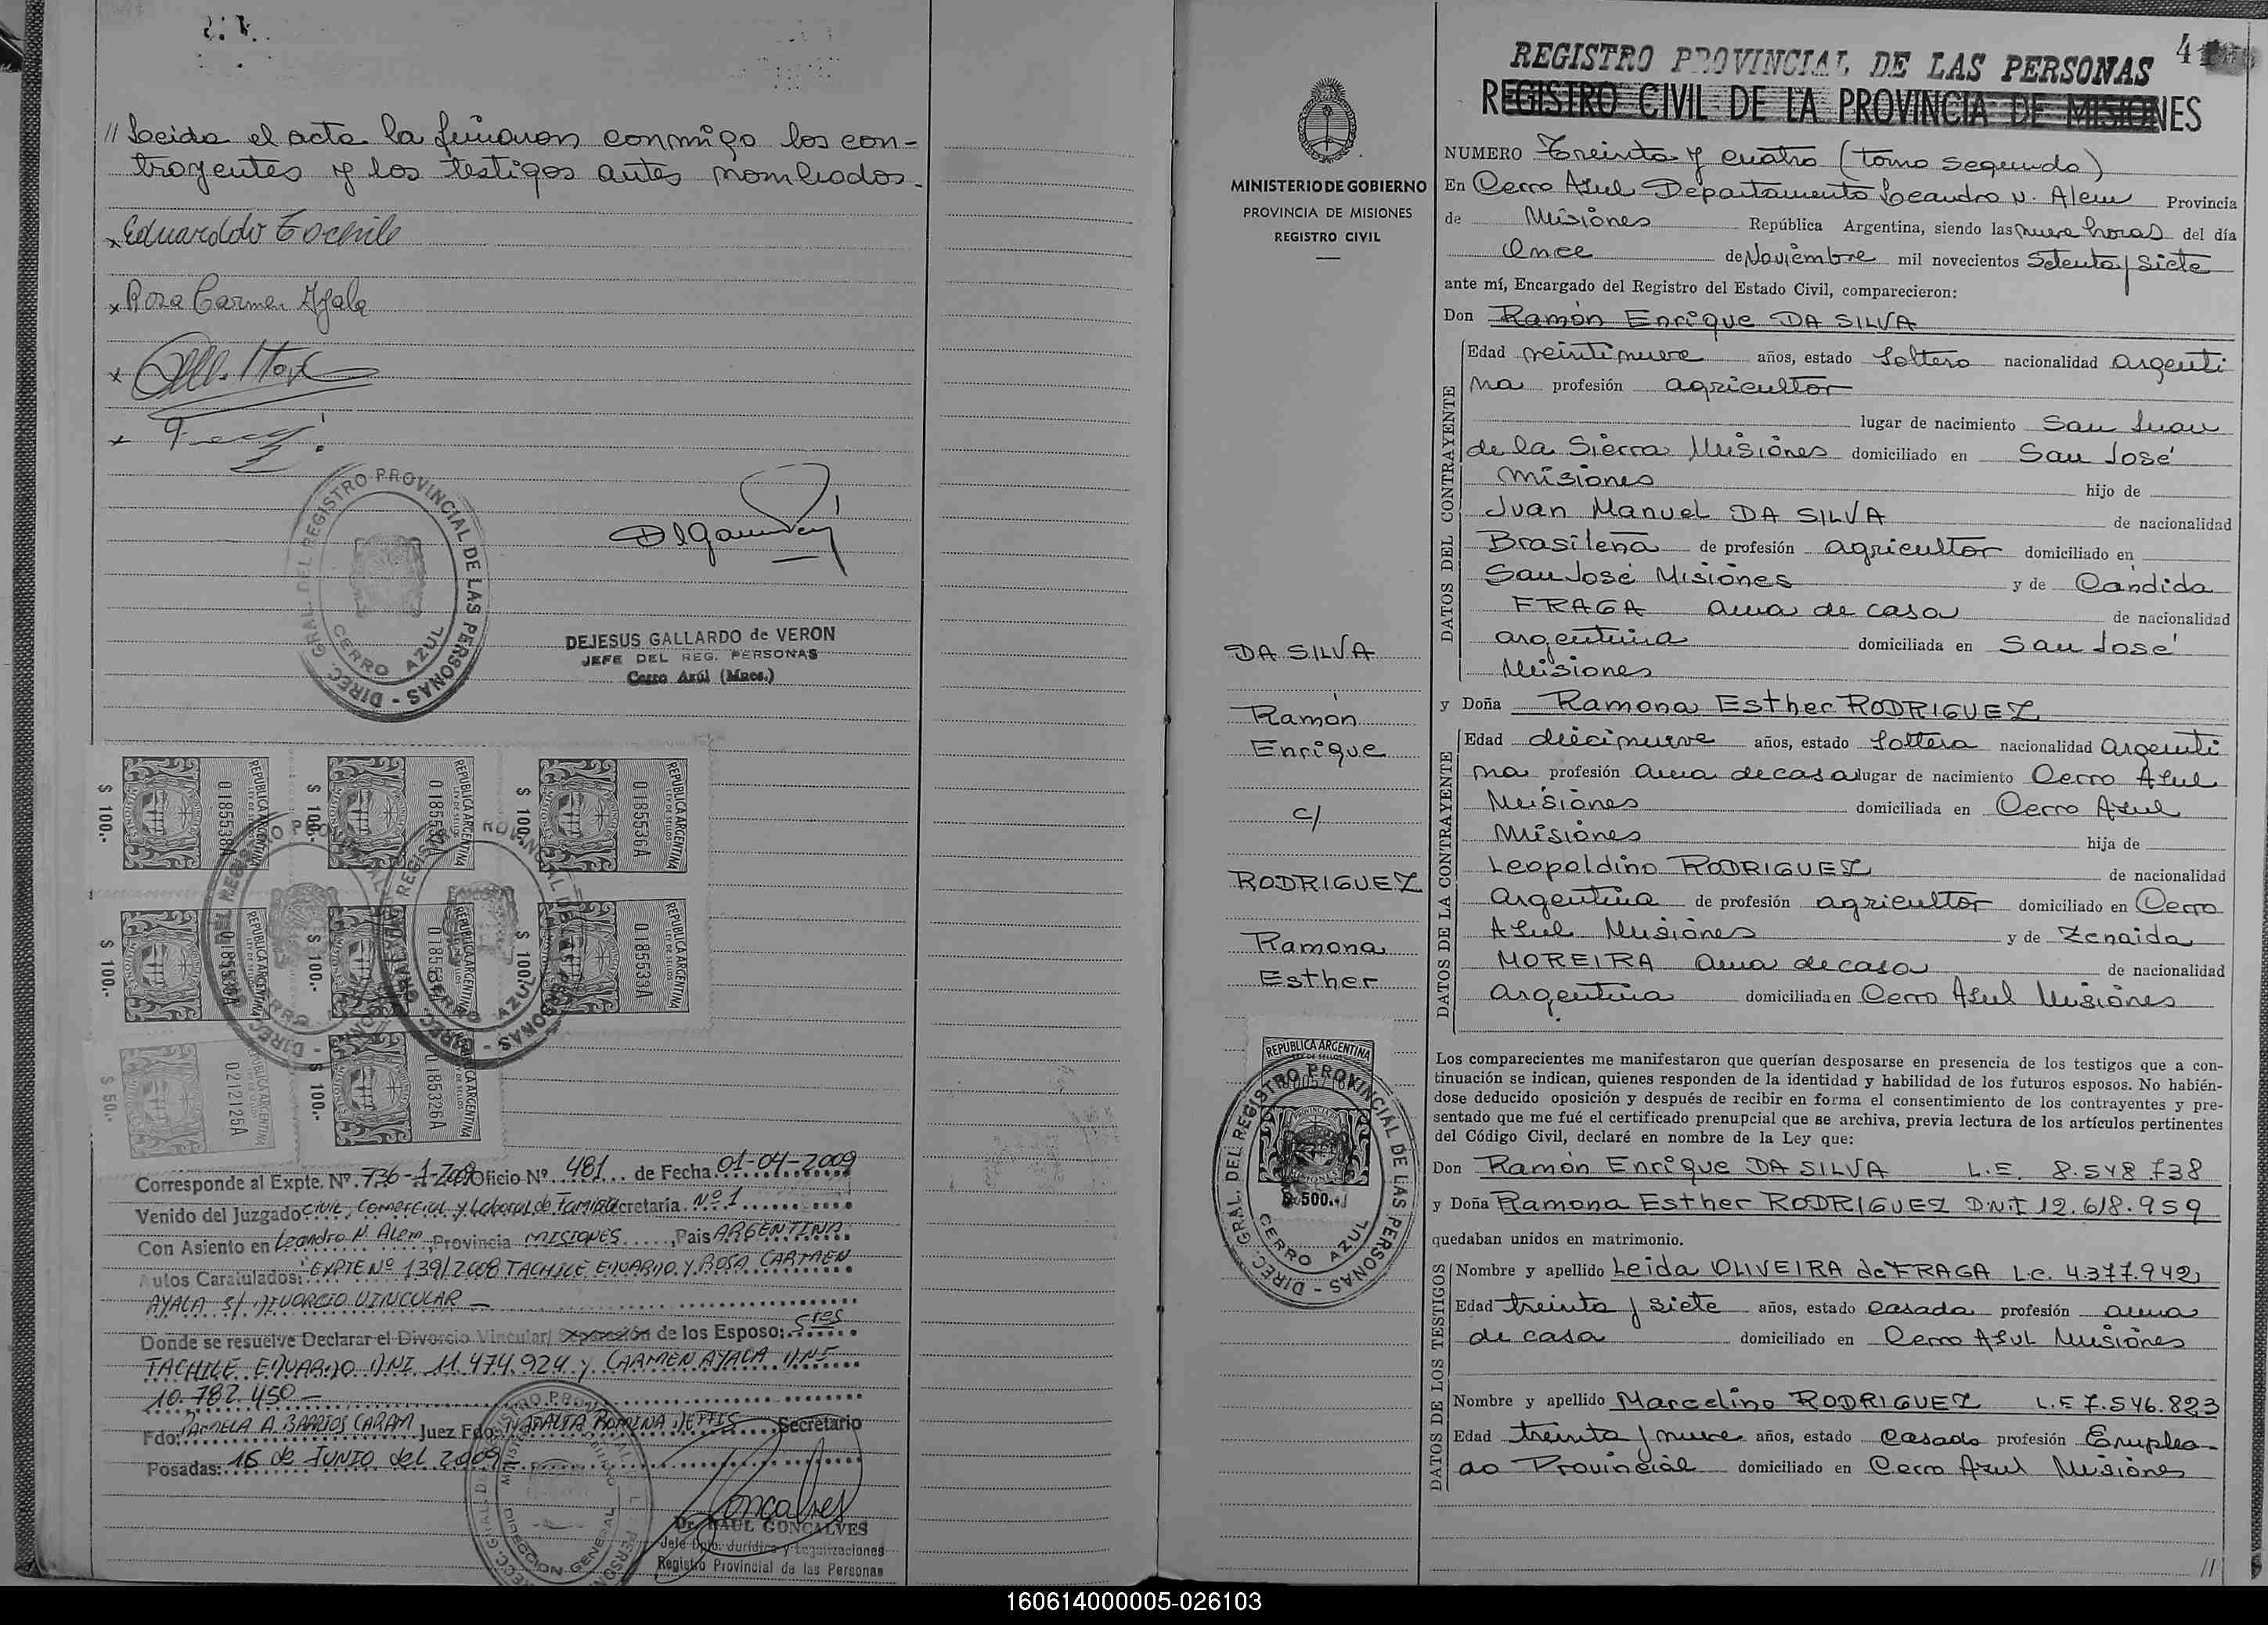 // Leida el acta la firman conmigo los con-
trayentes y los testigos antes nombrados.
x Eduardo Tachile
x Rosa Carmen Ayala
x
x
DIREC. GRAL. DEL REGISTRO PROVINCIAL DE LAS PERSONAS -
CERRO AZUL
DEJESUS GALLARDO de VERON
JEFE DEL REG. PERSONAS
Cerro Azúl (Mnes.)
REPUBLICA ARGENTINA
LEY DE SELLOS
$ 100.-
REPUBLICA ARGENTINA
LEY DE SELLOS
$ 100.-
REPUBLICA ARGENTINA
0185536A
$ 100.-
REPUBLICA ARGENTINA
$ 100.-
REPUBLICA ARGENTINA
$ 100.-
REPUBLICA ARGENTINA
0185533A
$ 100.-
REPUBLICA ARGENTINA
0212125A
$ 50.-
0185326A
$ 100.-
Corresponde al Expte. Nº. 736-A-2009 Oficio Nº. 481... de Fecha 01-04-2009
Venido del Juzgado Civil, Comercial y Laboral de Familia Secretaría. Nº 1
Con Asiento en Leandro N. Alem, Provincia MISIONES, Pais ARGENTINA
Autos Caratulados: "EXPTE Nº 139/2008 TACHILE EDUARDO Y ROSA CARMEN
AYALA S/ DIVORCIO VINCULAR -
Donde se resuelve Declarar el Divorcio Vincular/ Separación de los Esposo: Sres
TACHILE EDUARDO DNI 11.474.924 y CARMEN AYALA DNI
10.782.450 -
Fdo: PAMELA A. BARRIOS CARAM Juez Fdo: NATALIA ROMINA Secretario
Posadas: 16 de JUNIO del 2009
DIRECCION GENERAL
Goncalves
Dr. RAUL GONCALVES
Jefe Dpto. Jurídico y Legalizaciones
Registro Provincial de las Personas
4
MINISTERIO DE GOBIERNO
PROVINCIA DE MISIONES
REGISTRO CIVIL
DA SILVA
Ramón
Enrique
c/
RODRIGUEZ
Ramona
Esther
REPUBLICA ARGENTINA
LEY DE SELLOS
$ 500.-
DIREC. GRAL. DEL REGISTRO PROVINCIAL DE LAS PERSONAS -
CERRO AZUL
REGISTRO PROVINCIAL DE LAS PERSONAS
REGISTRO CIVIL DE LA PROVINCIA DE MISIONES
NUMERO Treinta y cuatro (tomo segundo)
En Cerro Azul Departamento Leandro N. Alem Provincia
de Misiones República Argentina, siendo las nueve horas del día
Once de Noviembre mil novecientos Setenta y Siete
ante mí, Encargado del Registro del Estado Civil, comparecieron:
Don Ramón Enrique DA SILVA
DATOS DEL CONTRAYENTE
Edad veintinueve años, estado Soltero nacionalidad argenti
na profesión agricultor
lugar de nacimiento San Juan
de la Sierra Misiones domiciliado en San José
Misiones hijo de
Juan Manuel DA SILVA de nacionalidad
Brasileña de profesión agricultor domiciliado en
San José Misiones y de Candida
FRAGA ama de casa de nacionalidad
argentina domiciliada en San José
Misiones
y Doña Ramona Esther RODRIGUEZ
DATOS DE LA CONTRAYENTE
Edad diecinueve años, estado Soltera nacionalidad argenti
na profesión ama de casa lugar de nacimiento Cerro Azul
Misiones domiciliada en Cerro Azul
Misiones hija de
Leopoldino RODRIGUEZ de nacionalidad
argentina de profesión agricultor domiciliado en Cerro
Azul Misiones y de Zenaida
MOREIRA ama de casa de nacionalidad
argentina domiciliada en Cerro Azul Misiones
Los comparecientes me manifestaron que querían desposarse en presencia de los testigos que a con-
tinuación se indican, quienes responden de la identidad y habilidad de los futuros esposos. No habién-
dose deducido oposición y después de recibir en forma el consentimiento de los contrayentes y pre-
sentado que me fué el certificado prenupcial que se archiva, previa lectura de los artículos pertinentes
del Código Civil, declaré en nombre de la Ley que:
Don Ramón Enrique DA SILVA L.E 8.548.738
y Doña Ramona Esther RODRIGUEZ D.N.I 12.618.959
quedaban unidos en matrimonio.
DATOS DE LOS TESTIGOS
Nombre y apellido Leida OLIVEIRA de FRAGA L.C. 4.377.942
Edad treinta y siete años, estado casada profesión ama
de casa domiciliado en Cerro Azul Misiones
Nombre y apellido Marcelino RODRIGUEZ L.E 7.546.823
Edad treinta y nueve años, estado casado profesión Emplea-
do Provincial domiciliado en Cerro Azul Misiones
//
160614000005-026103